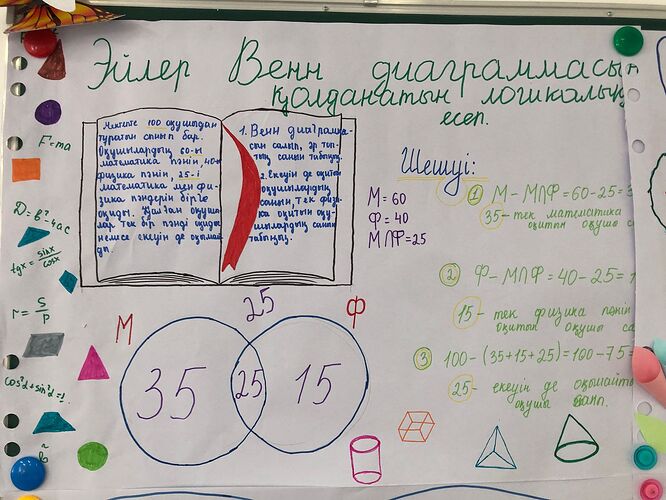 Эйлер Венн диаграммасын
қолданатын логикалық
есеп.
Мектепте 100 оқушыдан
тұратын сынып бар.
Оқушылардың 60-ы
математика пәнін, 40-ы
физика пәнін, 25-і
математика мен фи-
зика пәндерін бірге
оқиды. Қалған оқушы-
лар тек бір пәнді оқиды
немесе екеуін де оқымай-
ды.
1. Венн диаграмма-
сын салып, әр топ-
тың санын табыңыз.
2. Екеуін де оқитын
оқушылардың
санын, тек физи-
ка оқитын оқу-
шылардың санын
табыңыз.
Шешуі:
M = 60
Ф = 40
М∩Ф = 25
① М - М∩Ф = 60 - 25 = 3
35 - тек математика
оқитын оқушы са
② Ф - М∩Ф = 40 - 25 = 1
15 - тек физика пәнін
оқитын оқушы са
③ 100 - (35+15+25) = 100 - 75 =
25 - екеуін де оқымайт
оқушы
F = ma
D = b² - 4ac
tgx = sinx/cosx
r = S/P
cos²α + sin²α = 1
М
25
Ф
35
25
15